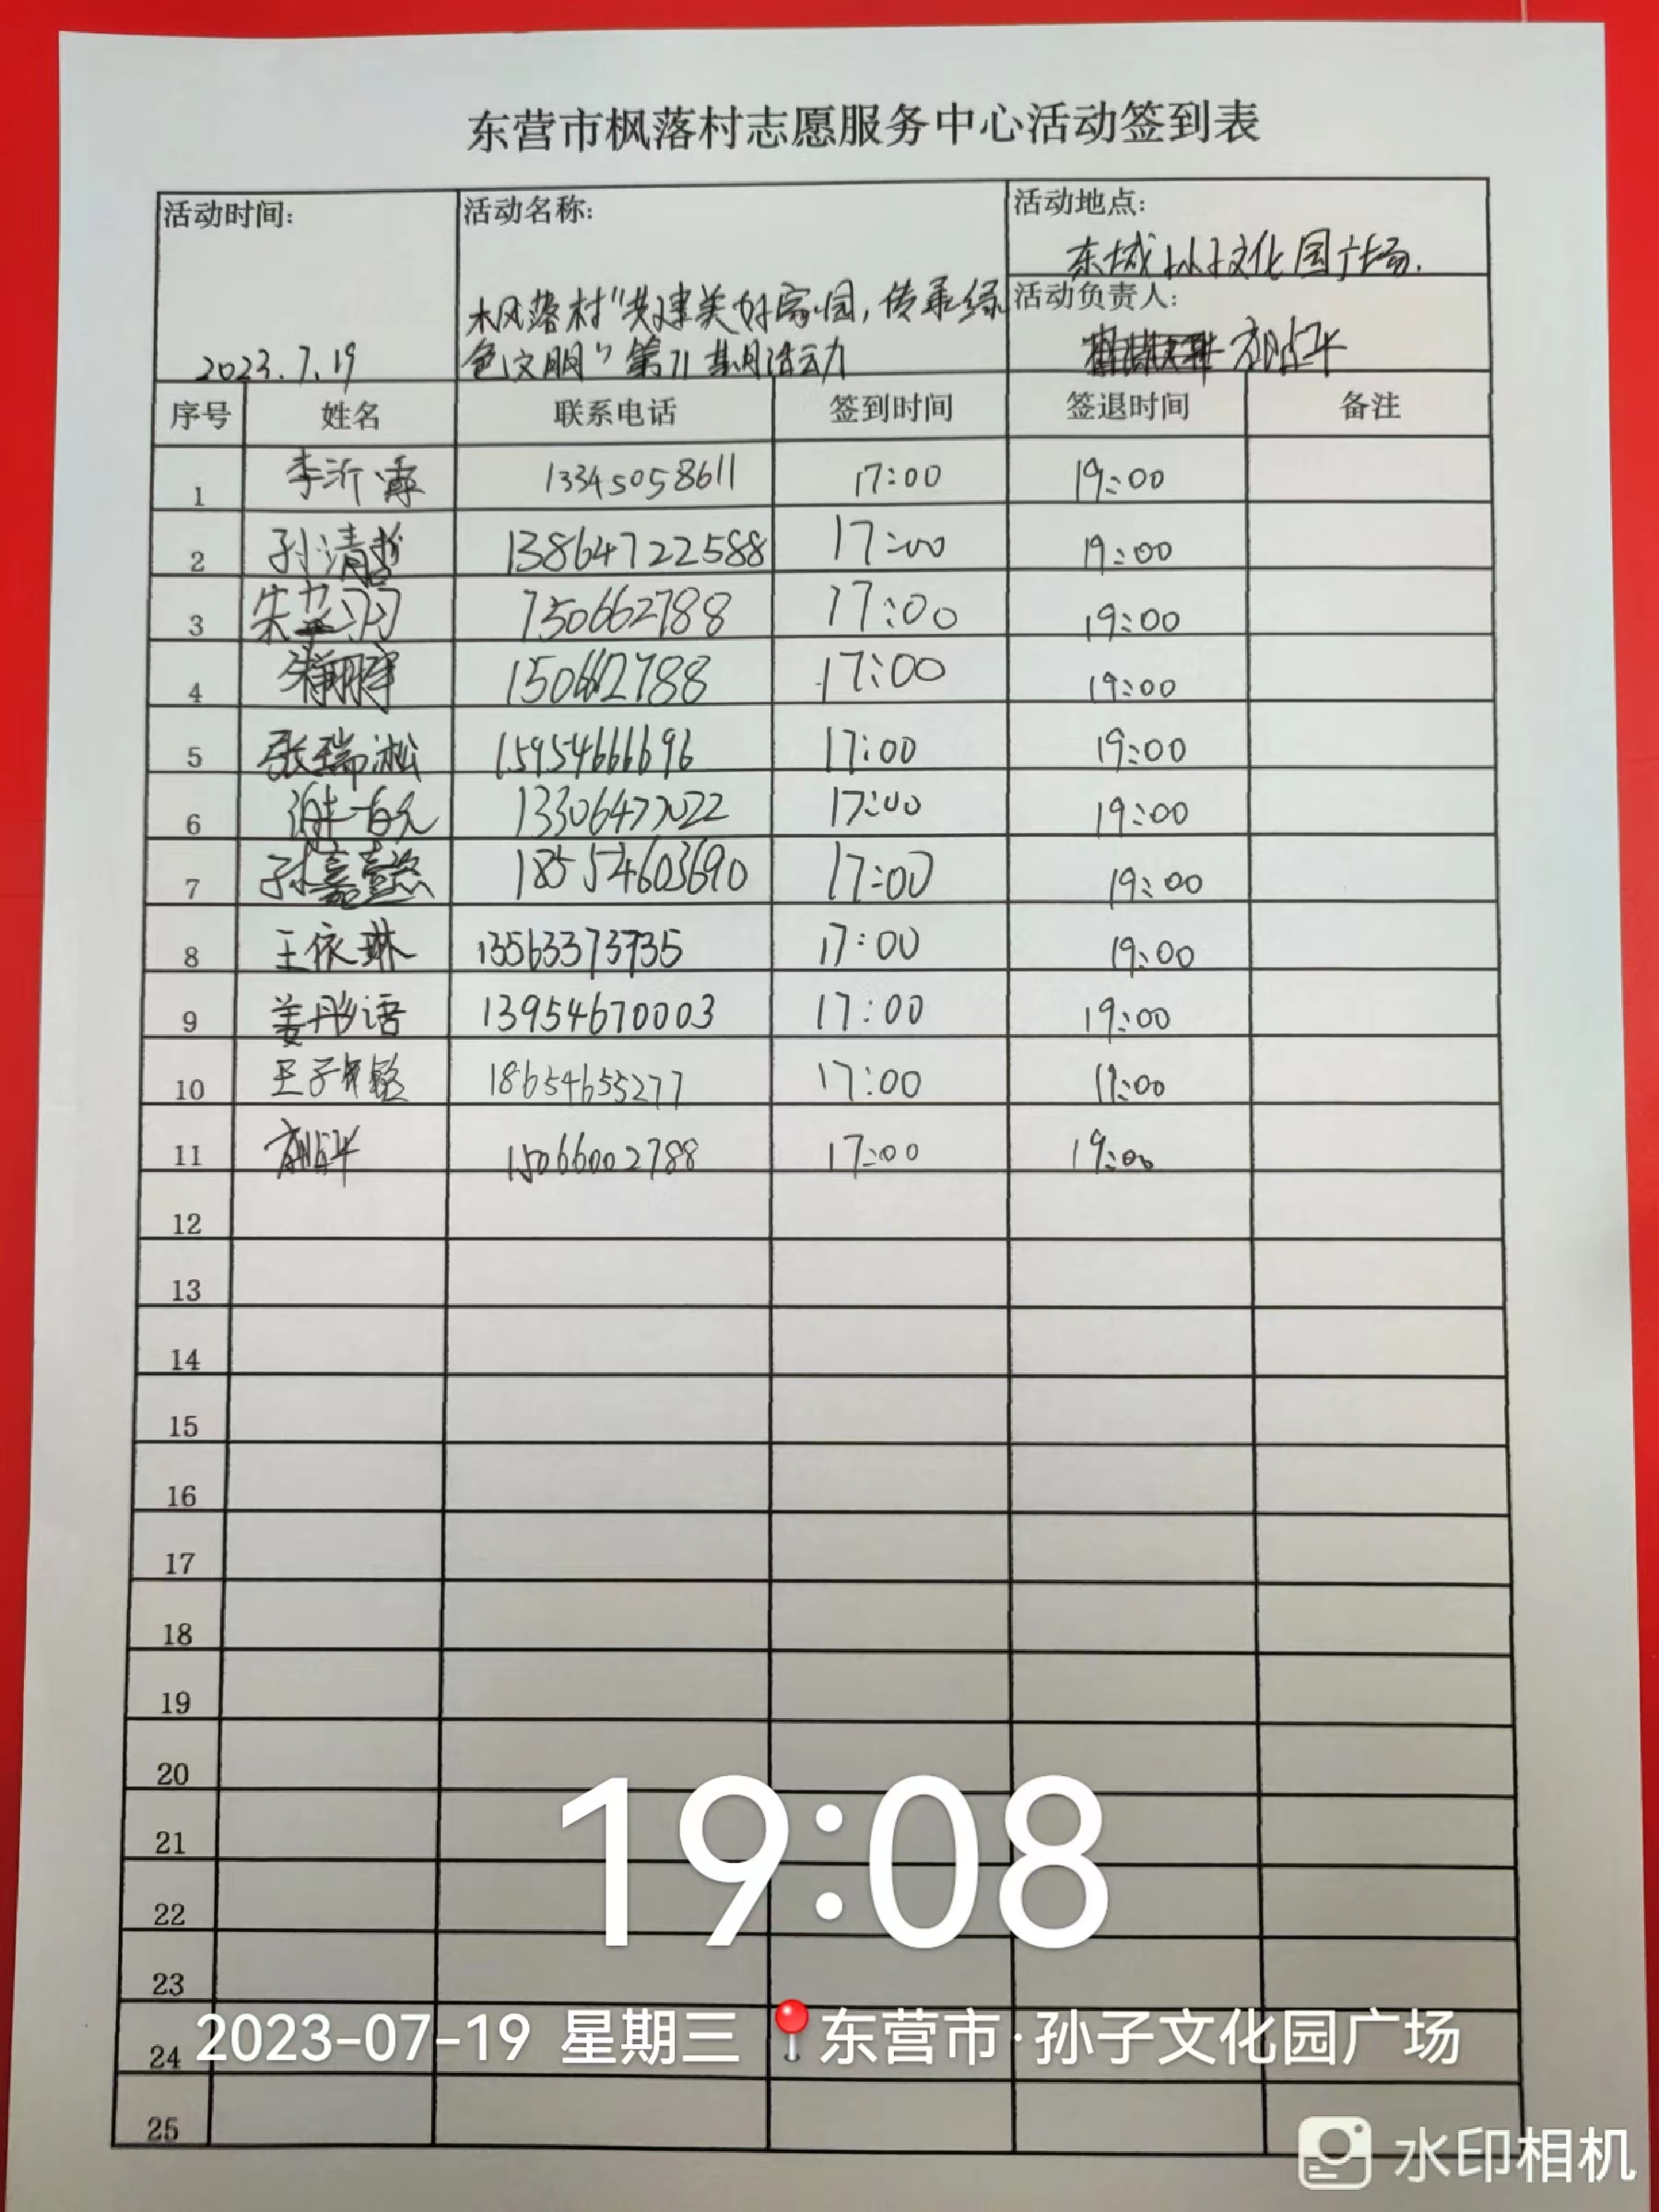 东营市枫落村志愿服务中心活动签到表
活动时间: 2023.7.19
活动名称: 枫落村“共建美好家园,传承绿
色文明”第71期活动
活动地点: 东城孙子文化园广场.
活动负责人:
序号 姓名 联系电话 签到时间 签退时间 备注
1 李沂霖 13345058611 17:00 19:00
2 孙清 13864722588 17:00 19:00
3 朱 150662788 17:00 19:00
4 150662788 17:00 19:00
5 张瑞淞 15954666696 17:00 19:00
6 谢 13306477022 17:00 19:00
7 孙嘉懿 18554603690 17:00 19:00
8 王依琳 13563373735 17:00 19:00
9 姜彤语 13954670003 17:00 19:00
10 王子 18654655277 17:00 19:00
11 15066002788 17:00 19:00
12
13
14
15
16
17
18
19
20
21
22
23
24
25
19:08
2023-07-19 星期三 东营市·孙子文化园广场
水印相机